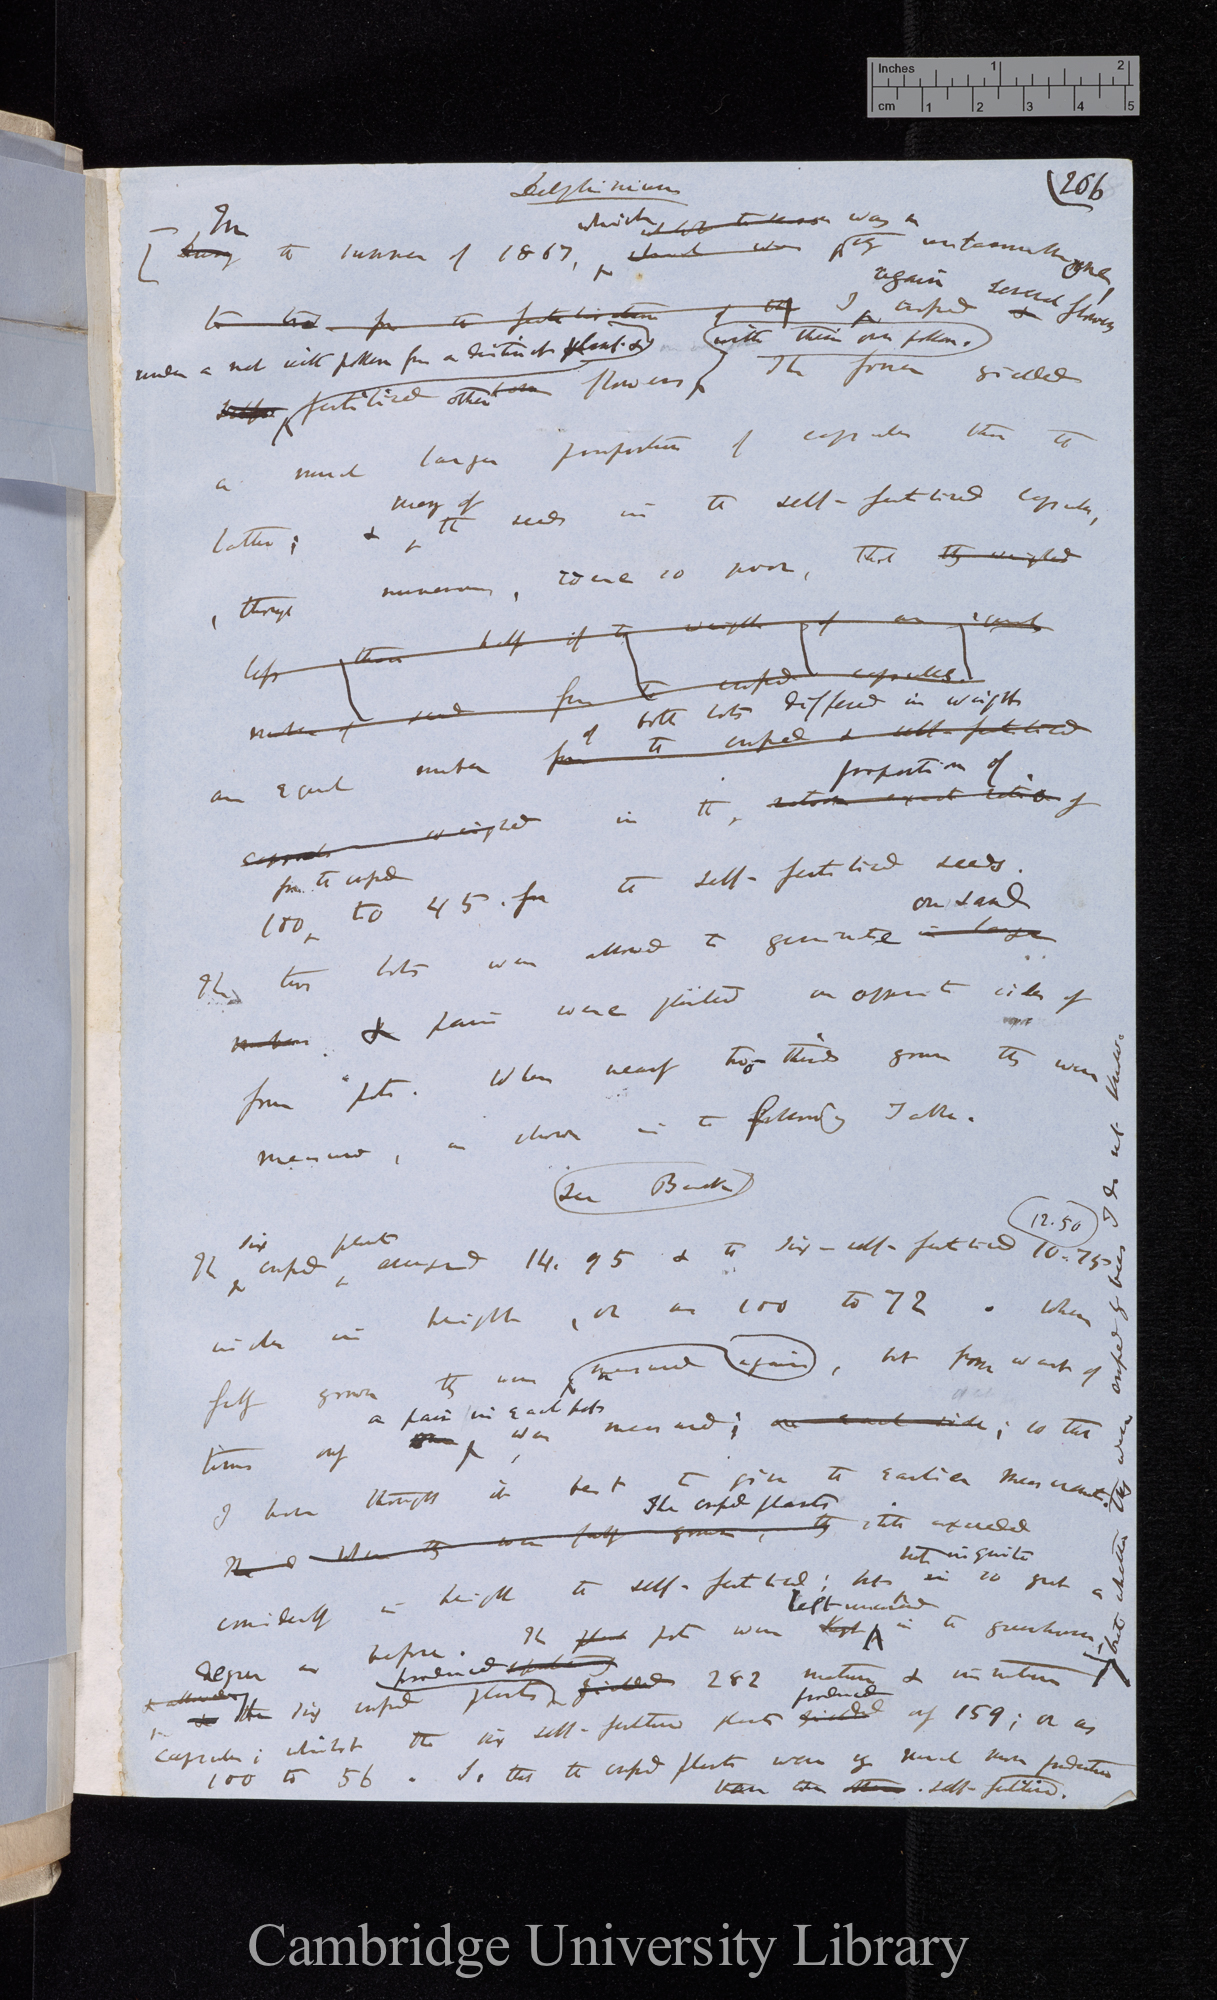 Inches 1 2
cm 1 2 3 4 5
Delphinium
266
In which was a
[ the summer of 1867, which was
again several flowers
I crossed &
under a net with pollen from a distinct plant &
with their own pollen.
fertilized other flowers The former yielded
a much larger proportion of capsules than the
many of
latter; & the seeds in the self-fertilised capsules,
, though numerous, were so poor, that they weighed
less than half of the weight of an equal
number of seed from the crossed capsules.
of both lots differed in weight
an equal number from the crossed & self-fertilised
proportion of
capsules weighed in the of
from the crossed
100 to 45 for the self-fertilised seeds.
on sand
The two lots were allowed to germinate in large
& pairs were planted on opposite sides of
four pots. When nearly two-thirds grown they were
measured, as shown in the following Table.
See Back
12.50
six plants
The crossed averaged 14.95 & the six self-fertilised 10.75
inches in height, or as 100 to 72. When
fully grown they were measured again, but from want of
a pair in each pots
time only was measured; on each side; so that
I have thought it best to give the earlier measurements.
The crossed plants
When they were fully grown, they still exceeded
but in quite
considerably in height the self-fertilised; but in so great a
left uncovered
degree as before. The pots were kept in the greenhouse
produced
the six crossed plants yielded 282 mature & immature
produced
capsules; whilst the six self-fertilised plants yielded only 159; or as
100 to 56. So that the crossed plants were very much more productive
than the self-fertilised.
but whether they were crossed by bees I do not know.
Cambridge University Library